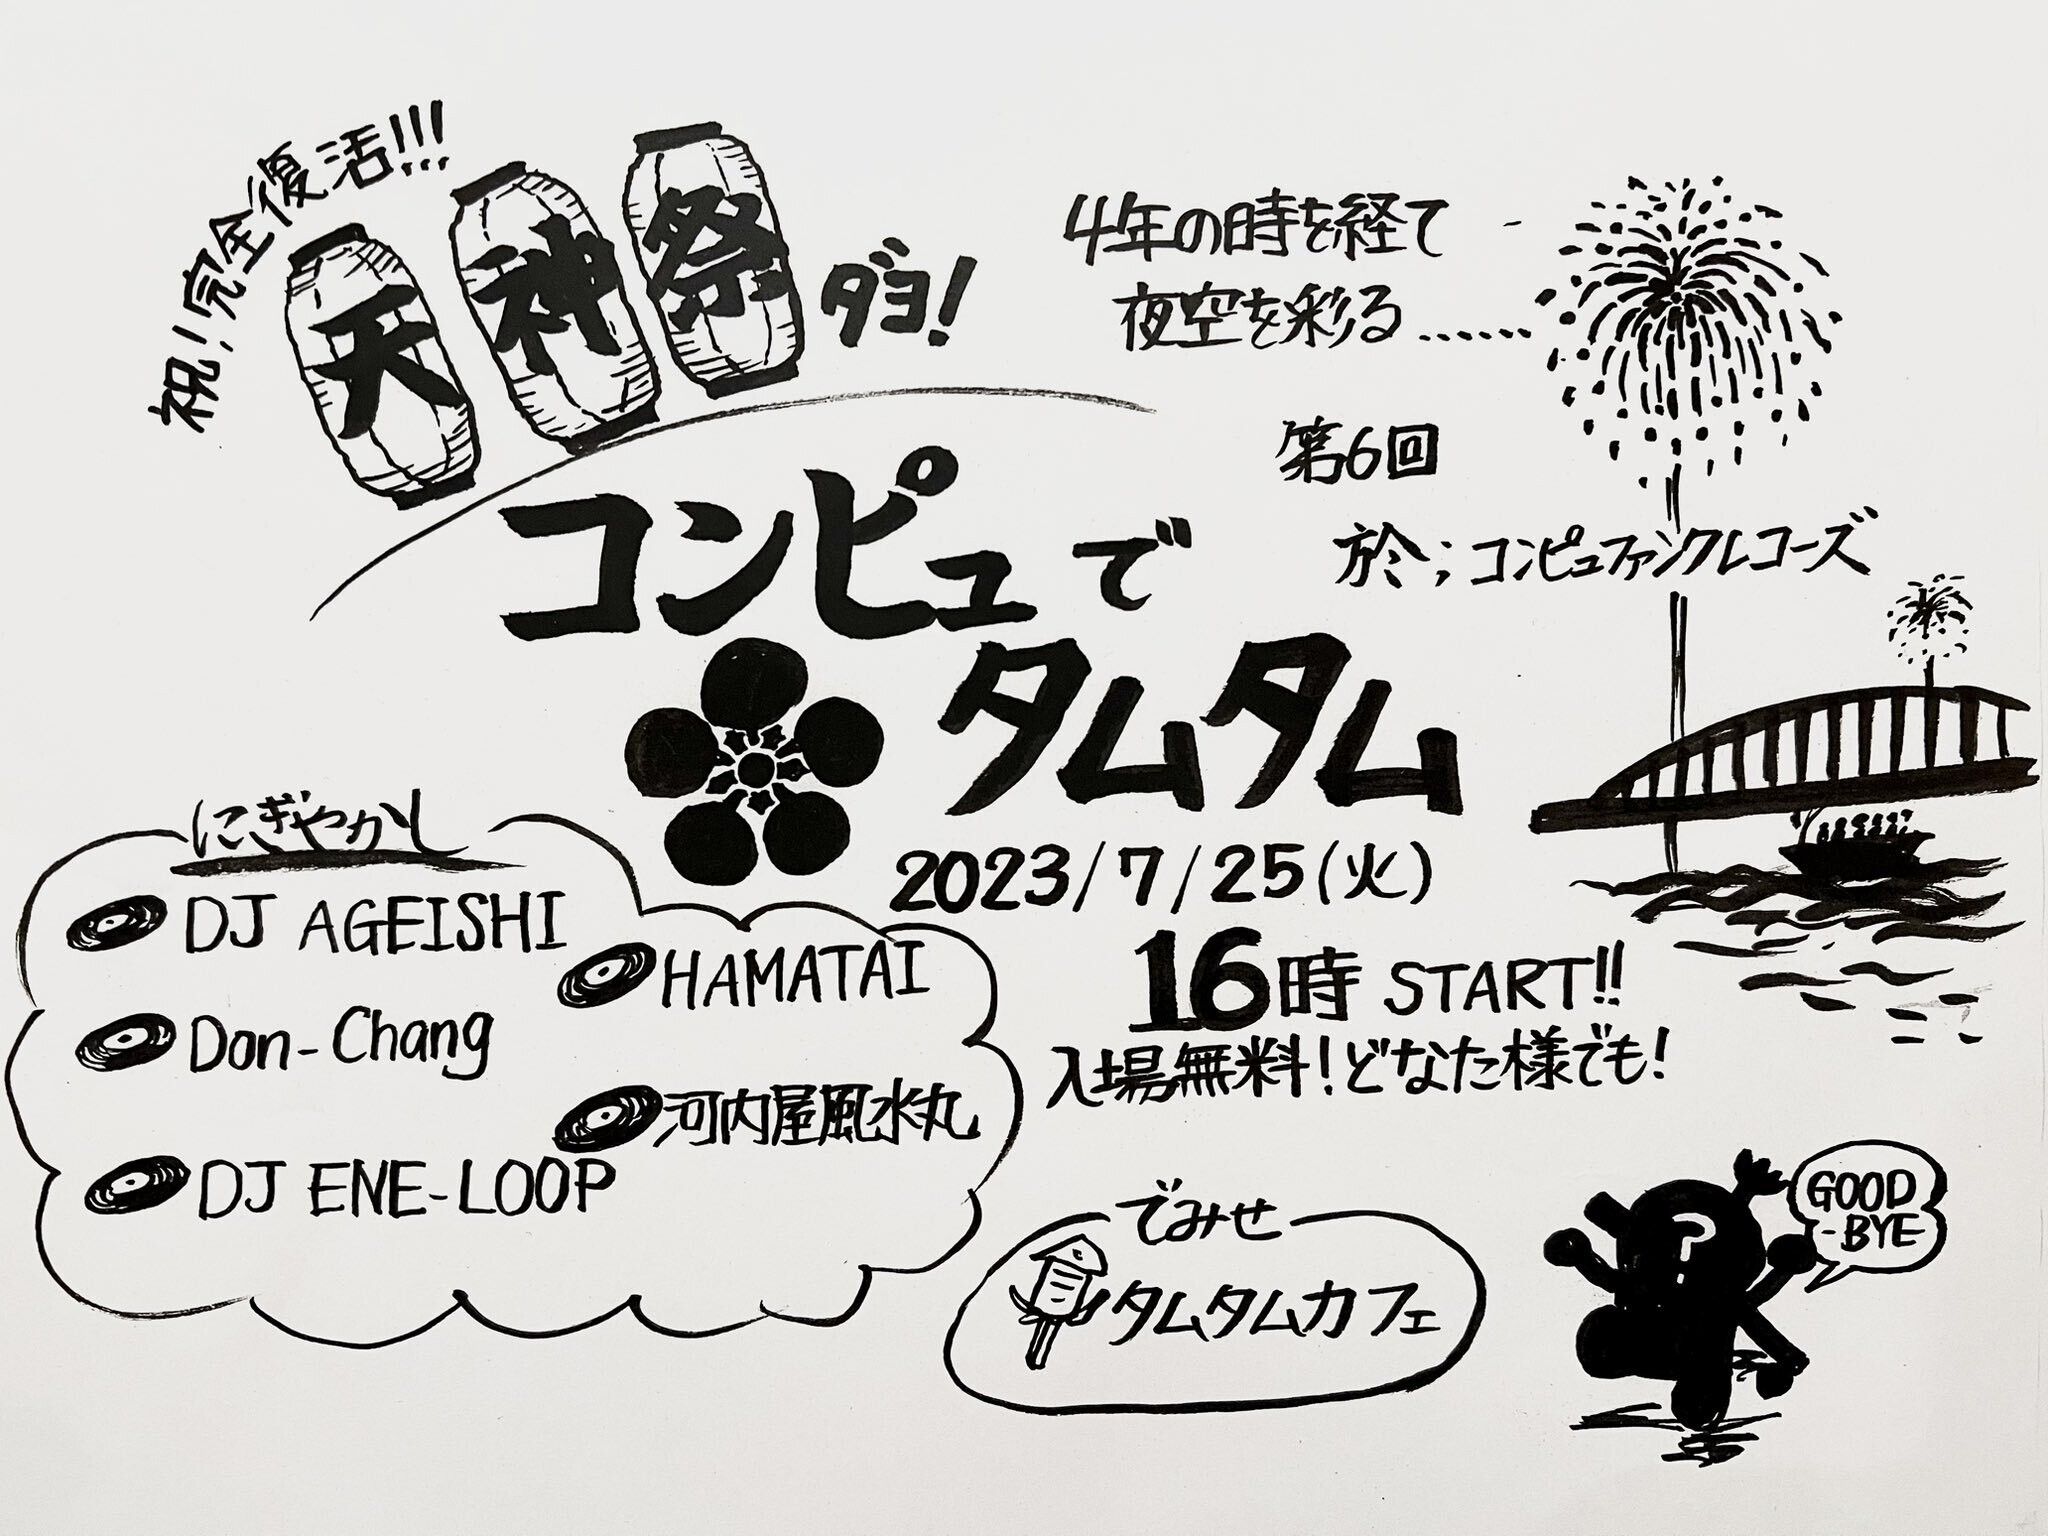 祝!完全復活!!!
天神祭ダヨ!
4年の時を経て
夜空を彩る......
第6回
コンピュで
於;コンピュファンクレコーズ
タムタム
2023/7/25(火)
16時 START!!
入場無料!どなた様でも!
にぎやかし
DJ AGEISHI
HAMATAI
Don-Chang
河内屋風水丸
DJ ENE-LOOP
でみせ
タムタムカフェ
GOOD
-BYE
?